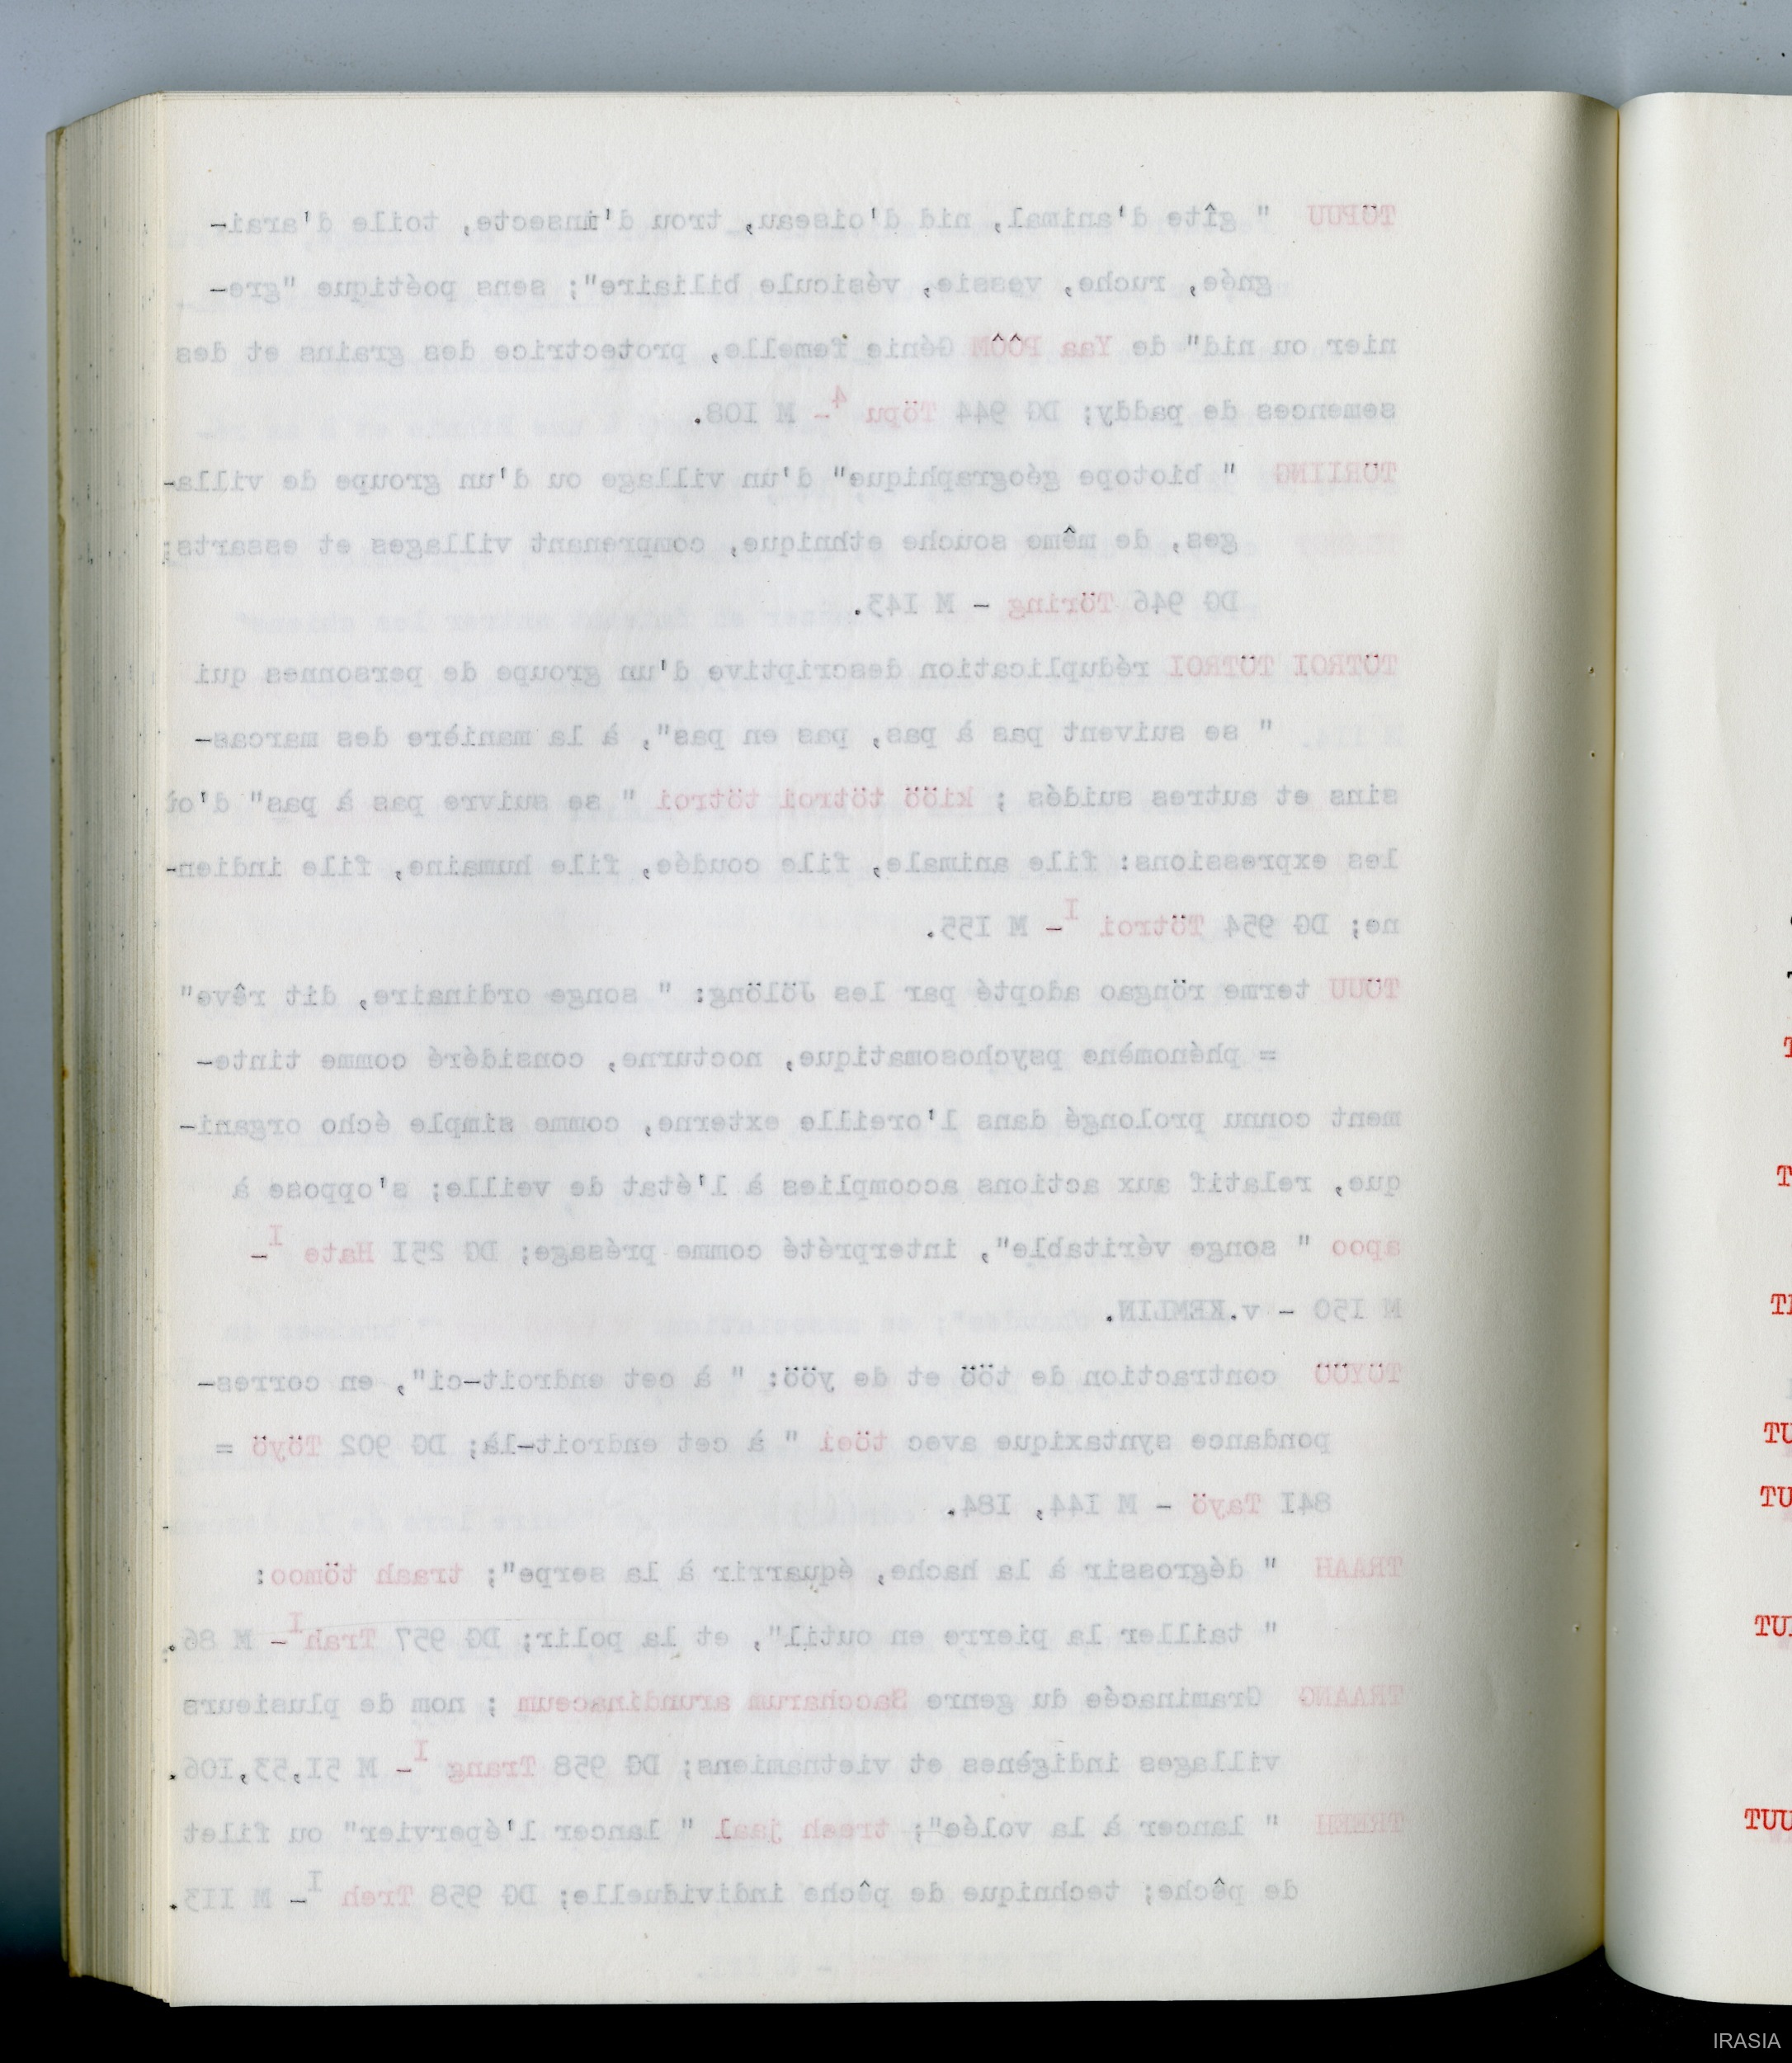 TÖPUU " gîte d'animal, nid d'oiseau, trou d'insecte, toile d'arai-
gnée, ruche, vessie, vésicule biliaire"; sens poétique "gre-
nier ou nid" de Yaa PÔÔM Génie femelle, protectrice des grains et des
semences de paddy; DG 944 Töpu 4- M I08.
TÖRIING " biotope géographique" d'un village ou d'un groupe de villa-
ges, de même souche ethnique, comprenant villages et essarts;
DG 946 Töring - M I43.
TÖTROI TÖTROI réduplication descriptive d'un groupe de personnes qui
" se suivent pas à pas, pas en pas", à la manière des marcas-
sins et autres suidés ; kiöö tötroi tötroi " se suivre pas à pas" d'où
les expressions: file animale, file coudée, file humaine, file indien-
ne; DG 954 Tötroi I- M I55.
TÖUU terme röngao adopté par les Jölöng: " songe ordinaire, dit rêve"
= phénomène psychosomatique, nocturne, considéré comme tinte-
ment connu prolongé dans l'oreille externe, comme simple écho organi-
que, relatif aux actions accomplies à l'état de veille; s'oppose à
apoo " songe véritable", interprété comme présage; DG 25I Hate I-
M I50 - v.KEMLIN.
TÖYÖÖ contraction de töö et de yöö: " à cet endroit-ci", en corres-
pondance syntaxique avec töei " à cet endroit-là; DG 902 Töyö =
84I Tayö - M I44, I84.
TRAAH " dégrossir à la hache, équarrir à la serpe"; traah tömoo:
" tailler la pierre en outil", et la polir; DG 957 Trah I- M 86.
TRAANG Graminacée du genre Saccharum arundinaceum ; nom de plusieurs
villages indigènes et vietnamiens; DG 958 Trang I- M 5I,53,I06.
TREEH " lancer à la volée"; treeh jaal " lancer l'épervier" ou filet
de pêche; technique de pêche individuelle; DG 958 Treh I- M II3.
TU
TU
TUU